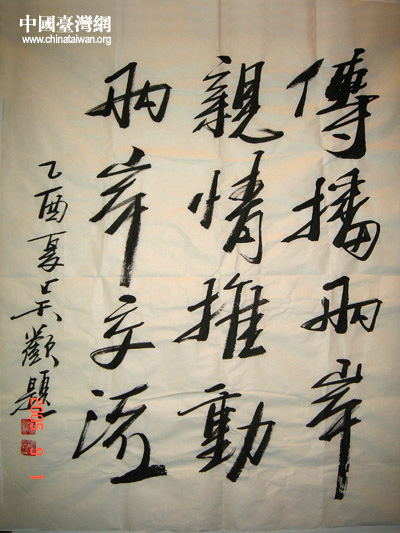 中國臺灣網
www.chinataiwan.org
傳播兩岸
親情推動
兩岸交流
乙酉夏吴歡題
2005 9 1